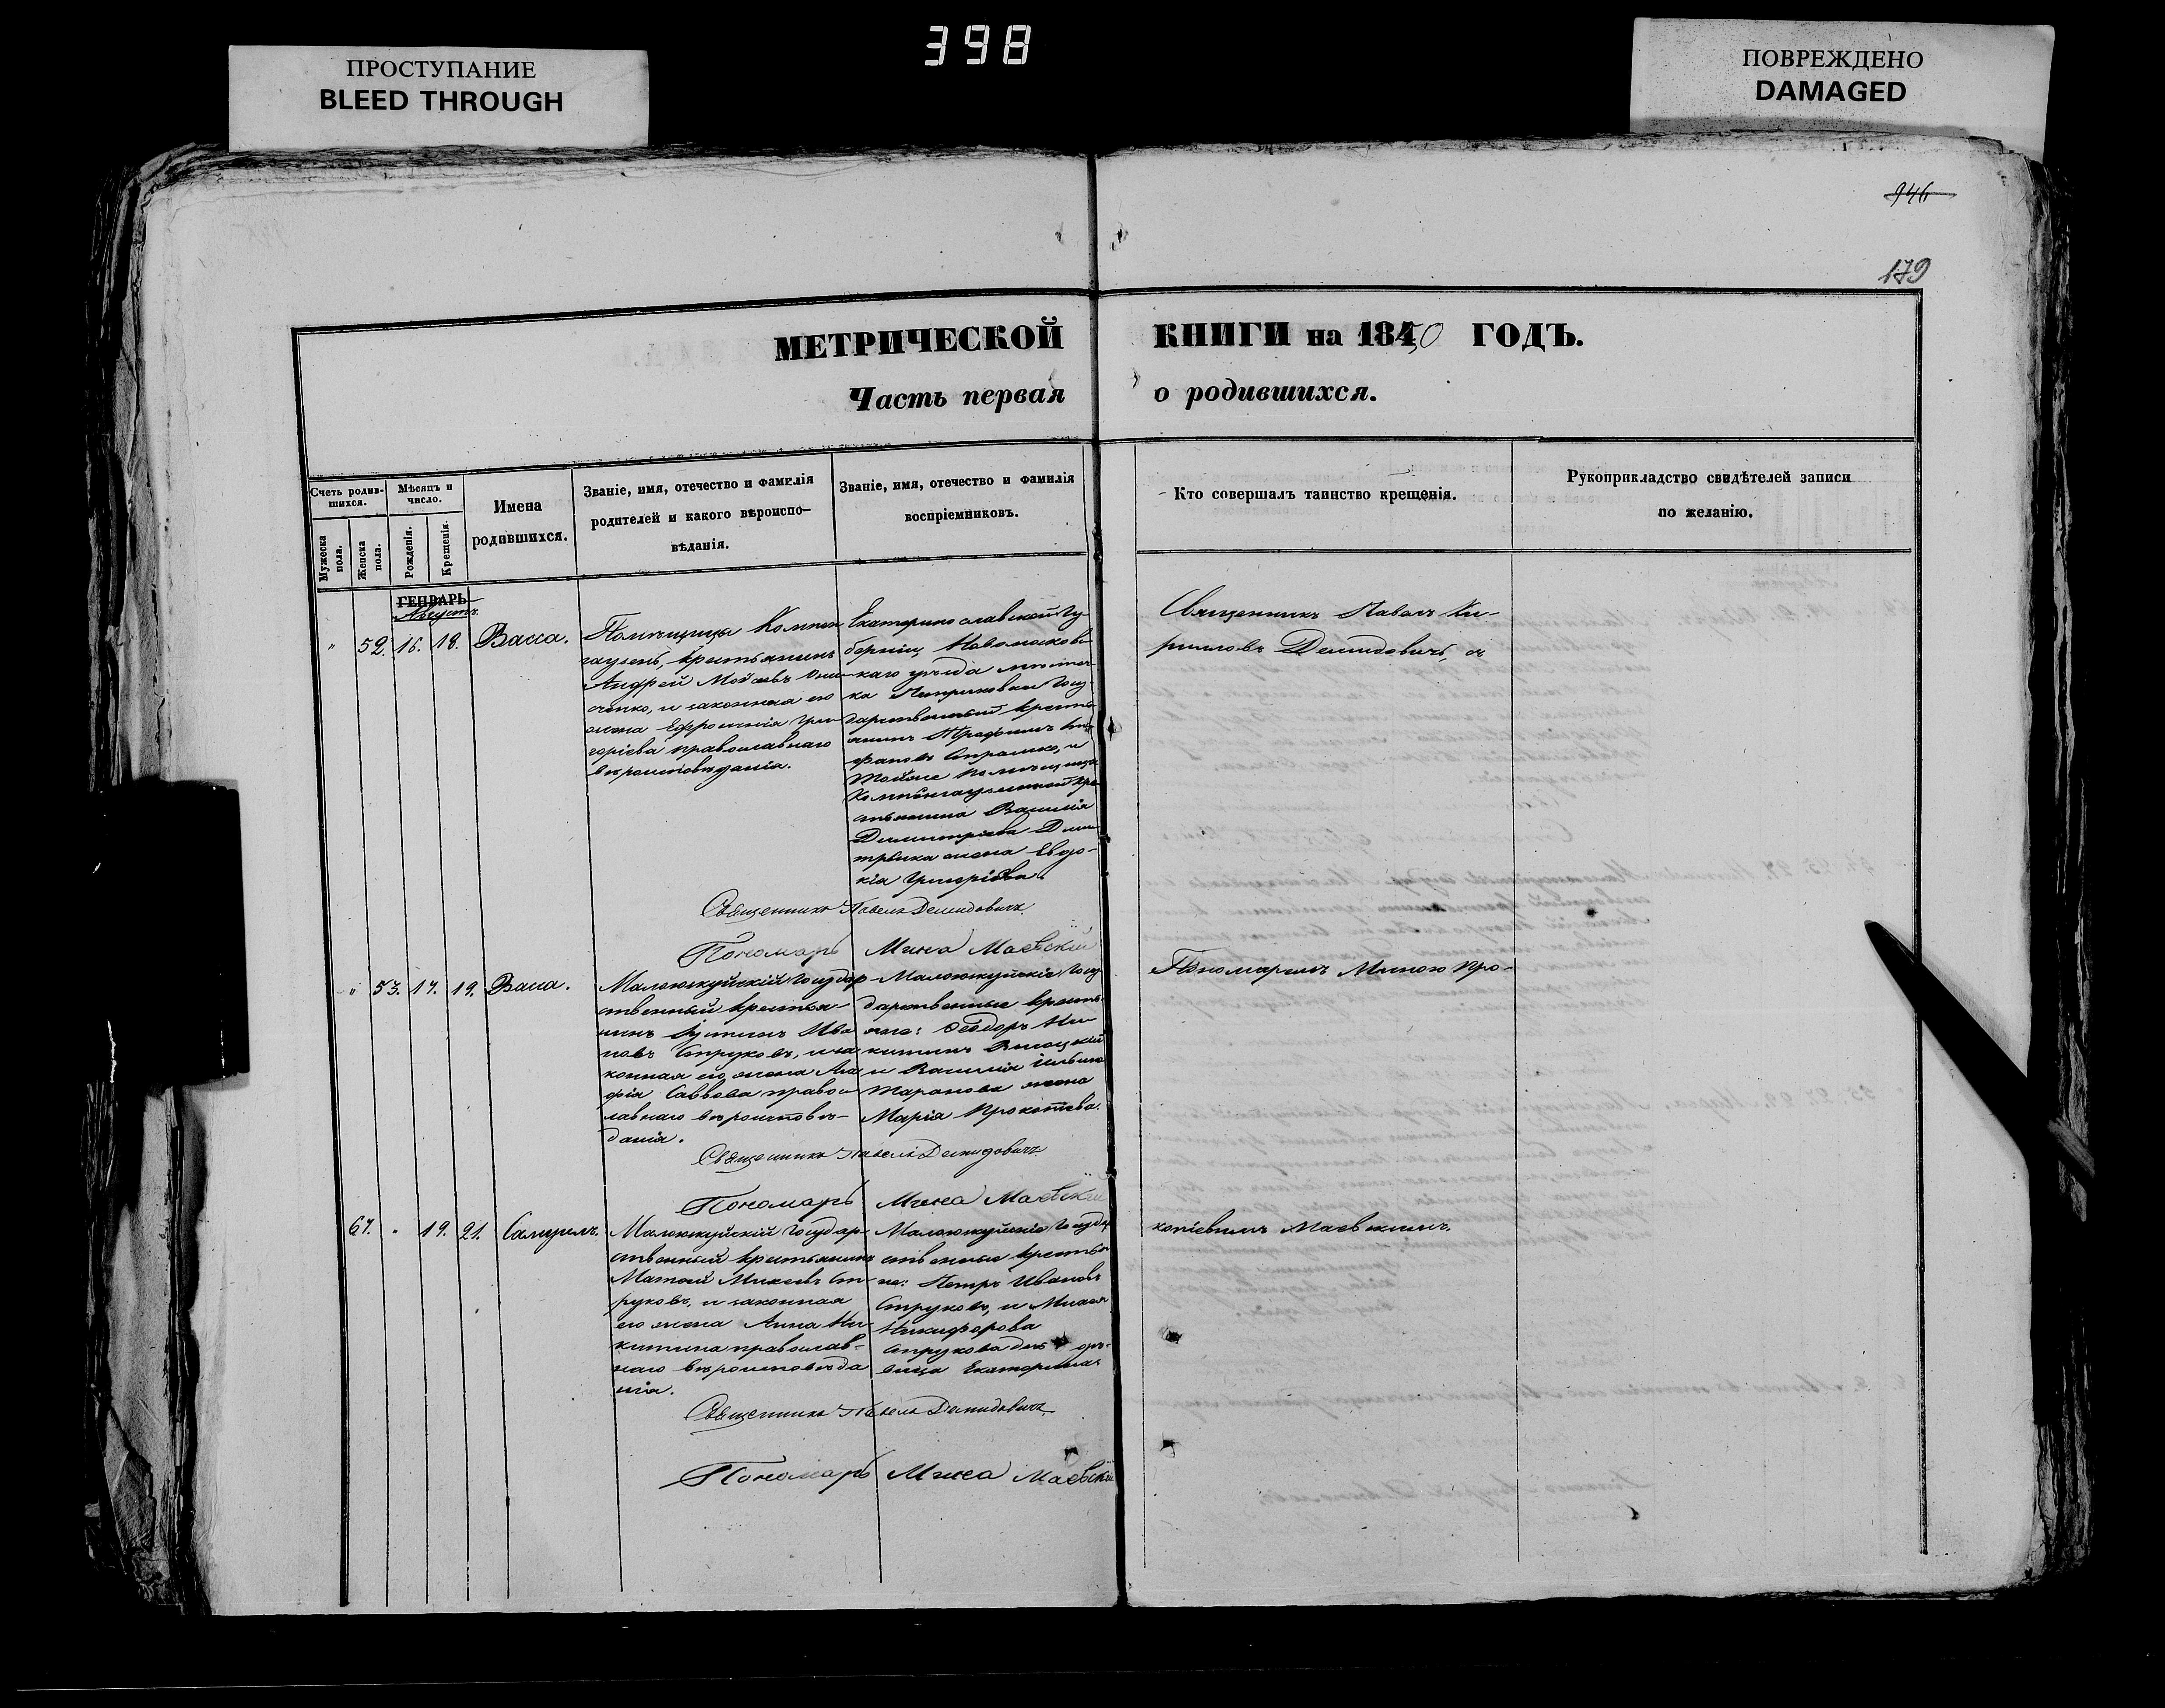 398
ПРОСТУПАНИЕ
BLEED THROUGH
ПОВРЕЖДЕНО
DAMAGED
946
179
МЕТРИЧЕСКОЙ КНИГИ на 1850 ГОДЪ.
Часть первая о родившихся.
Счетъ родив-
шихся.
Мужеска пола.
Женска пола.
Мѣсяцъ и
число.
Рожденія.
Крещенія.
Имена
родившихся.
Званіе, имя, отечество и фамилія
родителей и какого вѣроиспо-
вѣданія.
Званіе, имя, отечество и фамилія
воспріемниковъ.
Кто совершалъ таинство крещенія.
Рукоприкладство свидѣтелей записи
по желанію.
ГЕНВАРЬ
Августъ
" 52. 16. 18. Васса.
Помѣщицы
крестьянинъ
Андрей Моѵсеевъ
и законная его
жена Ефросинія Гри-
горіева православнаго
вѣроисповѣданія.
Екатеринославской Гу-
берніи Новомосков-
скаго уѣзда
ка Петриковки Госу-
дарственный кресть-
янинъ Трофимъ
и
помѣщицы
кре-
стьянина Василія
Димитріева Дми-
тренка жена Евдо-
кія Григоріева.
Священникъ Павелъ Ки-
рилловъ Демидовичъ, съ
Священникъ Павелъ Демидовичъ
Пономарь Мина Маевскій
" 53. 17. 19. Васса.
Государ-
ственный крестья-
нинъ Іустинъ Ива-
новъ Струковъ, и за-
конная его жена Ага-
фія Саввова правос-
лавнаго вѣроисповѣ-
данія.
Госу-
дарственные кресть-
яне: Ѳеодоръ Ни-
китинъ
и Василія Ильина
Таранова жена
Марія Прокопіева.
Пономаремъ Миною Про-
Священникъ Павелъ Демидовичъ
Пономарь Мина Маевскій
67. " 19. 21. Самуилъ.
Государ-
ственный крестьянинъ
Матѳей Михеевъ Ст-
руковъ, и законная
его жена Анна Ни-
китина православ-
наго вѣроисповѣда-
нія.
Государ-
ственные крестья-
не: Петръ Ивановъ
Струковъ, и
Никифорова
Струкова
вица Екатерина.
копіевымъ Маевскимъ.
Священникъ Павелъ Демидовичъ
Пономарь Мина Маевскій